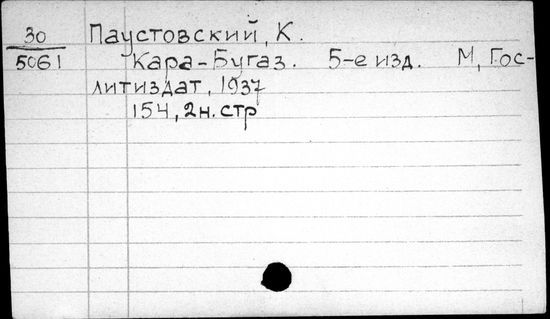 30 Паустовский, К.
5061 Кара-Бугаз. 5-е изд. М, Гос-
литиздат, 1937
154, 2н. стр